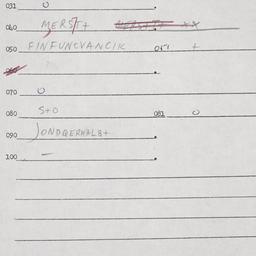 031 O
040 MERST+ xx
050 FINFUNCVANCIK 051 +
070 O
080 S+O 081 O
090 JONDQERHALB+
100 —